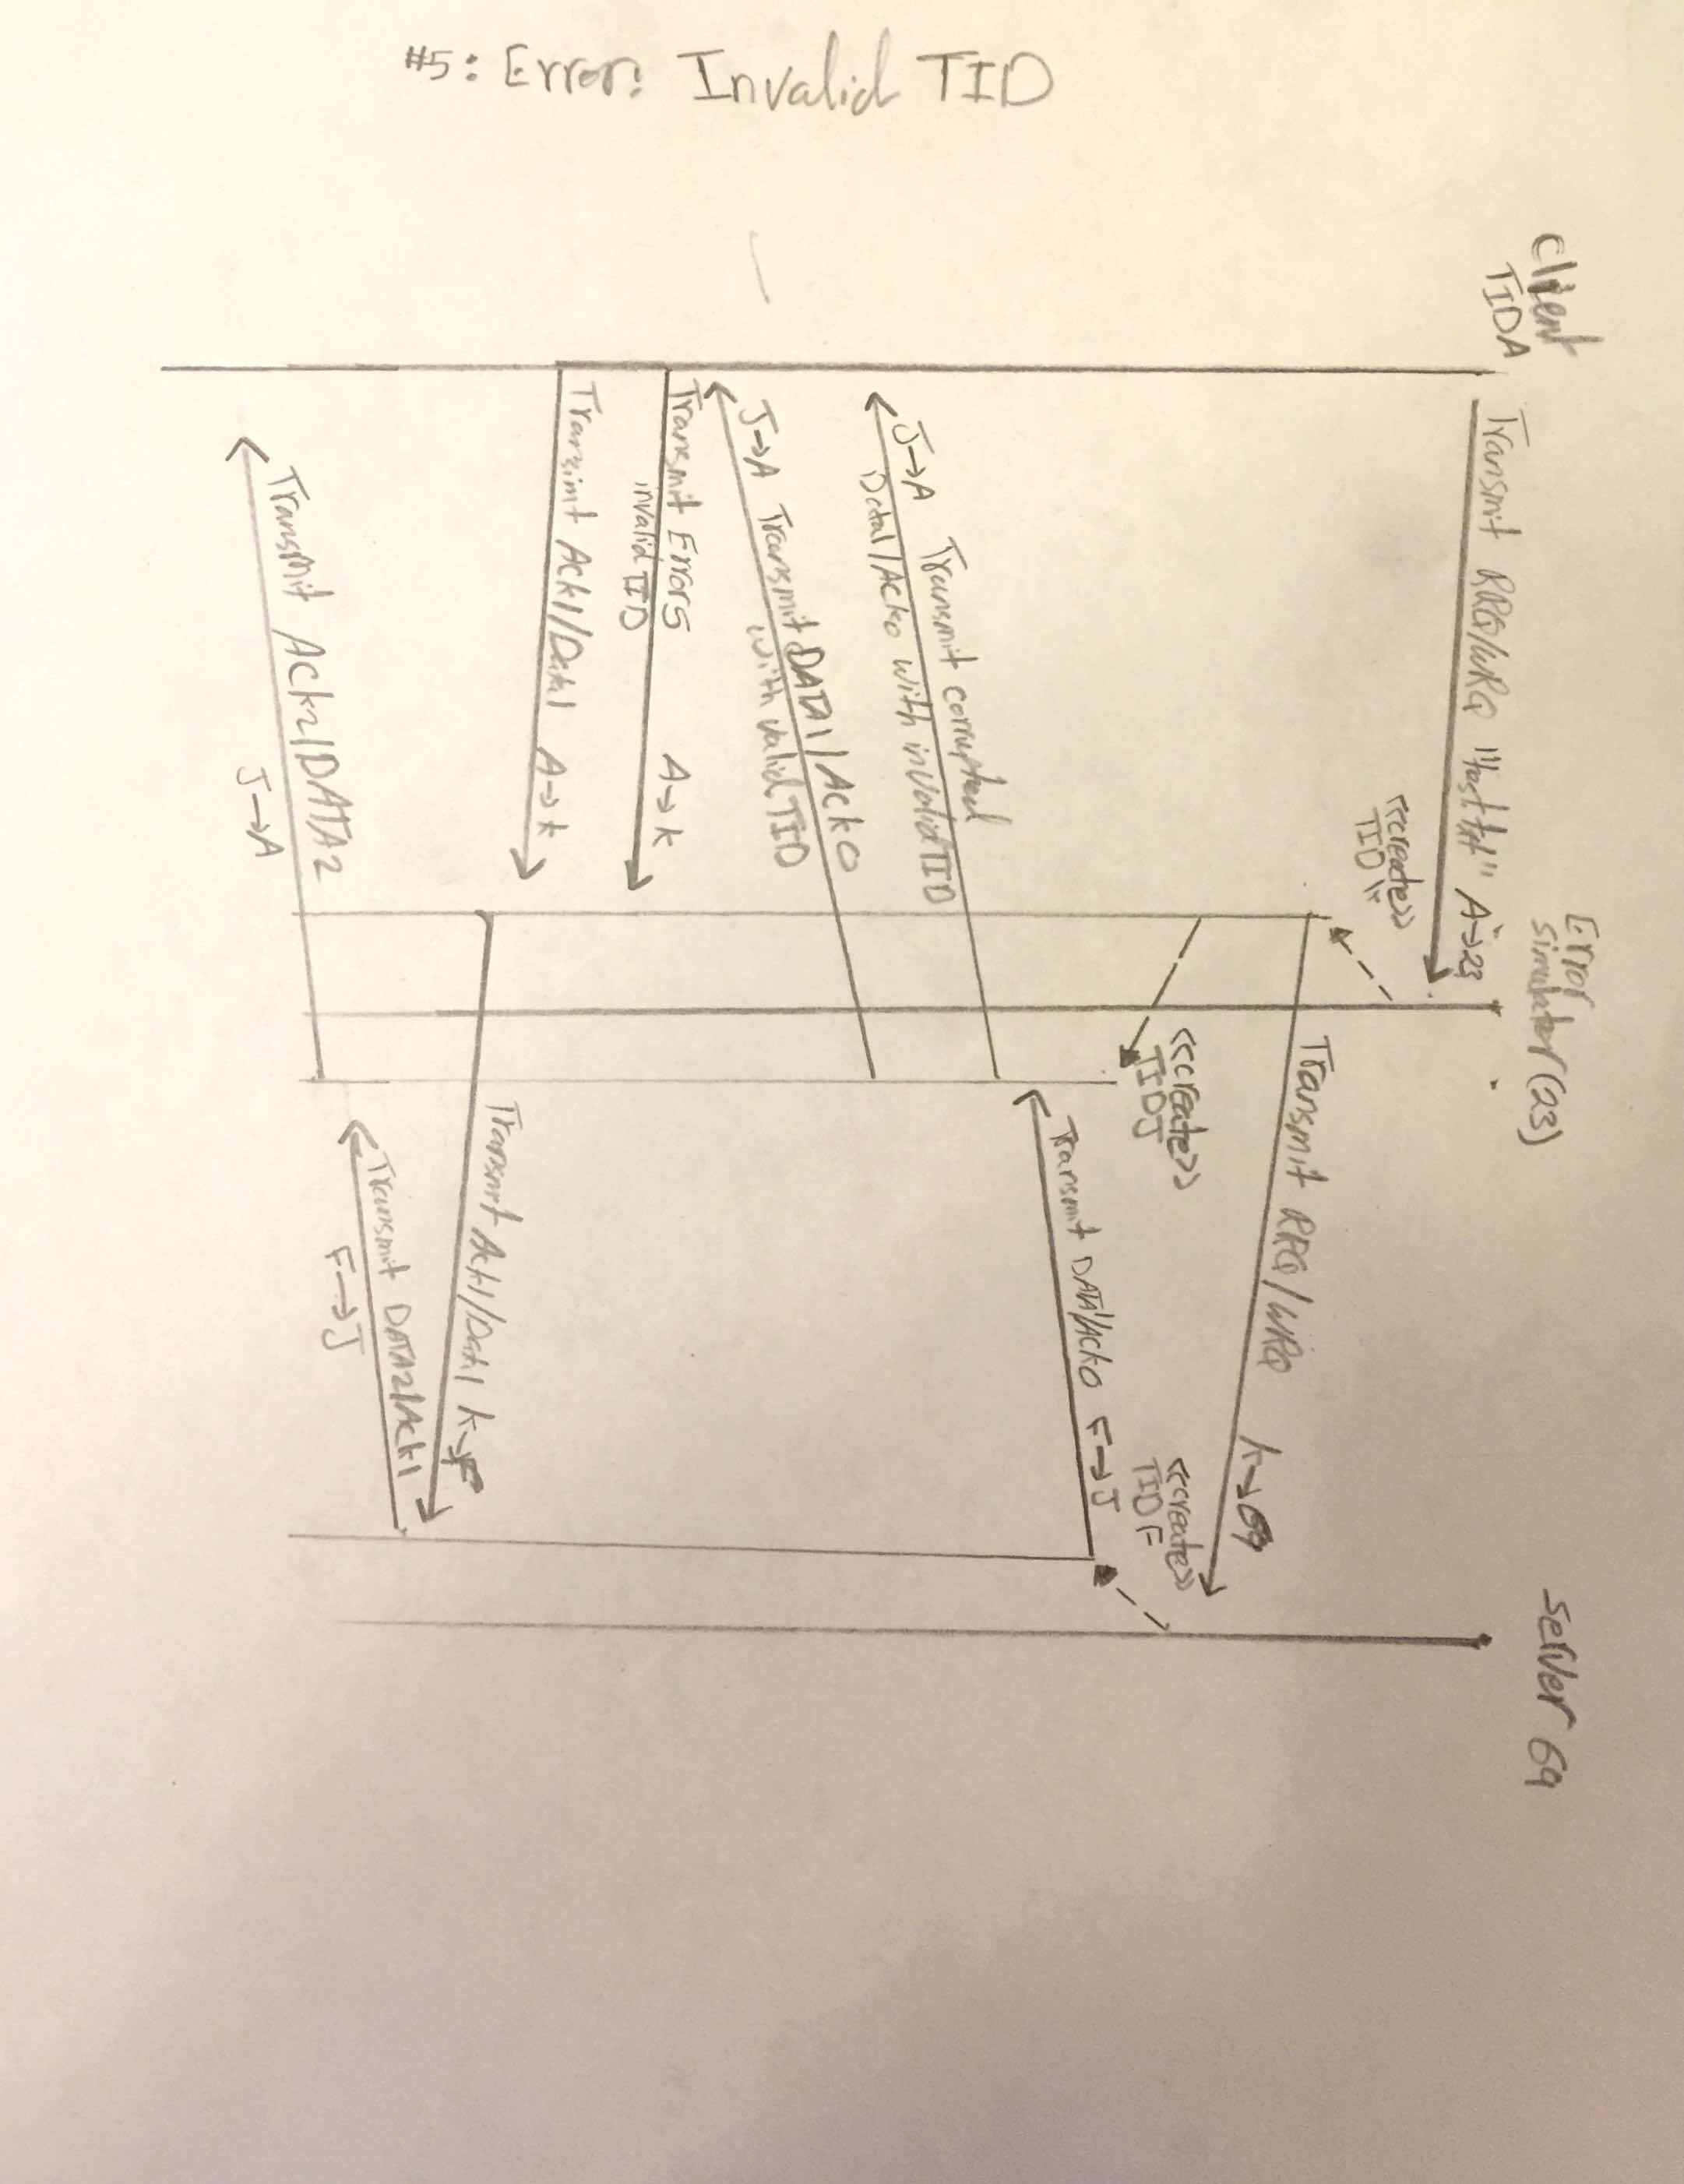 #5: Error: Invalid TID
Client
TIDA
Error
simulator(23)
Server 69
Transmit RRQ/WRQ "test.txt" A→23
<<create>>
TID K
Transmit RRQ/WRQ K→69
<<create>>
TIDJ
<<create>>
TID F
Transmit DATA1/Ack0 F→J
J→A Transmit corrupted
Data1/Ack0 with invalid TID
J→A Transmit DATA1/Ack0
with valid TID
Transmit Error5 A→K
invalid TID
Transimt Ack1/Data1 A→K
Transmit Ack1/Data1 K→F
Transmit DATA2/Ack1
F→J
Transmit Ack2/DATA2
J→A